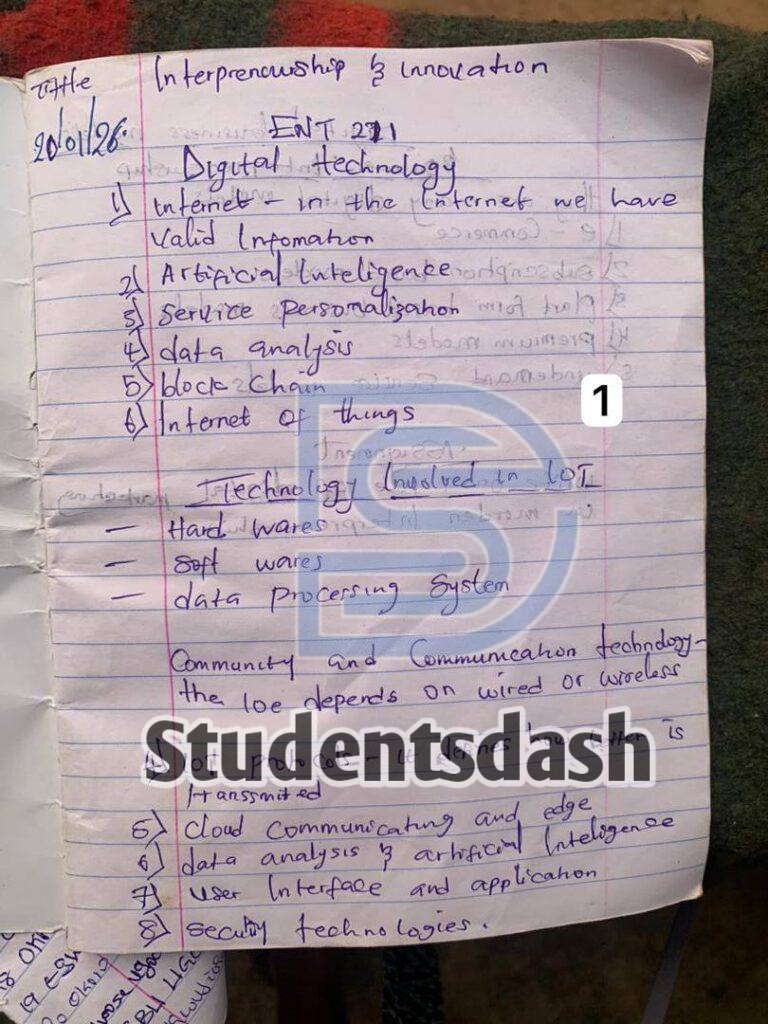 Title Interprenourship & innovation
20/01/26.
ENT 211
Digital technology
1) internet - in the internet we have
Valid Infomation
2) Artificial Inteligence
3) service personalization
4) data analysis
5) block Chain
6) Internet of things
1
Technology Involved in IOT
— Hard wares
— Soft wares
— data processing System
Community and Communication technology-
the IOE depends on wired or wireless
Studentsdash
4) IOT protocols - it defines how is
transsmited
5) Cloud communicating and edge
6) data analysis & artificial Inteligence
7) user Interface and application
8) security technologies.